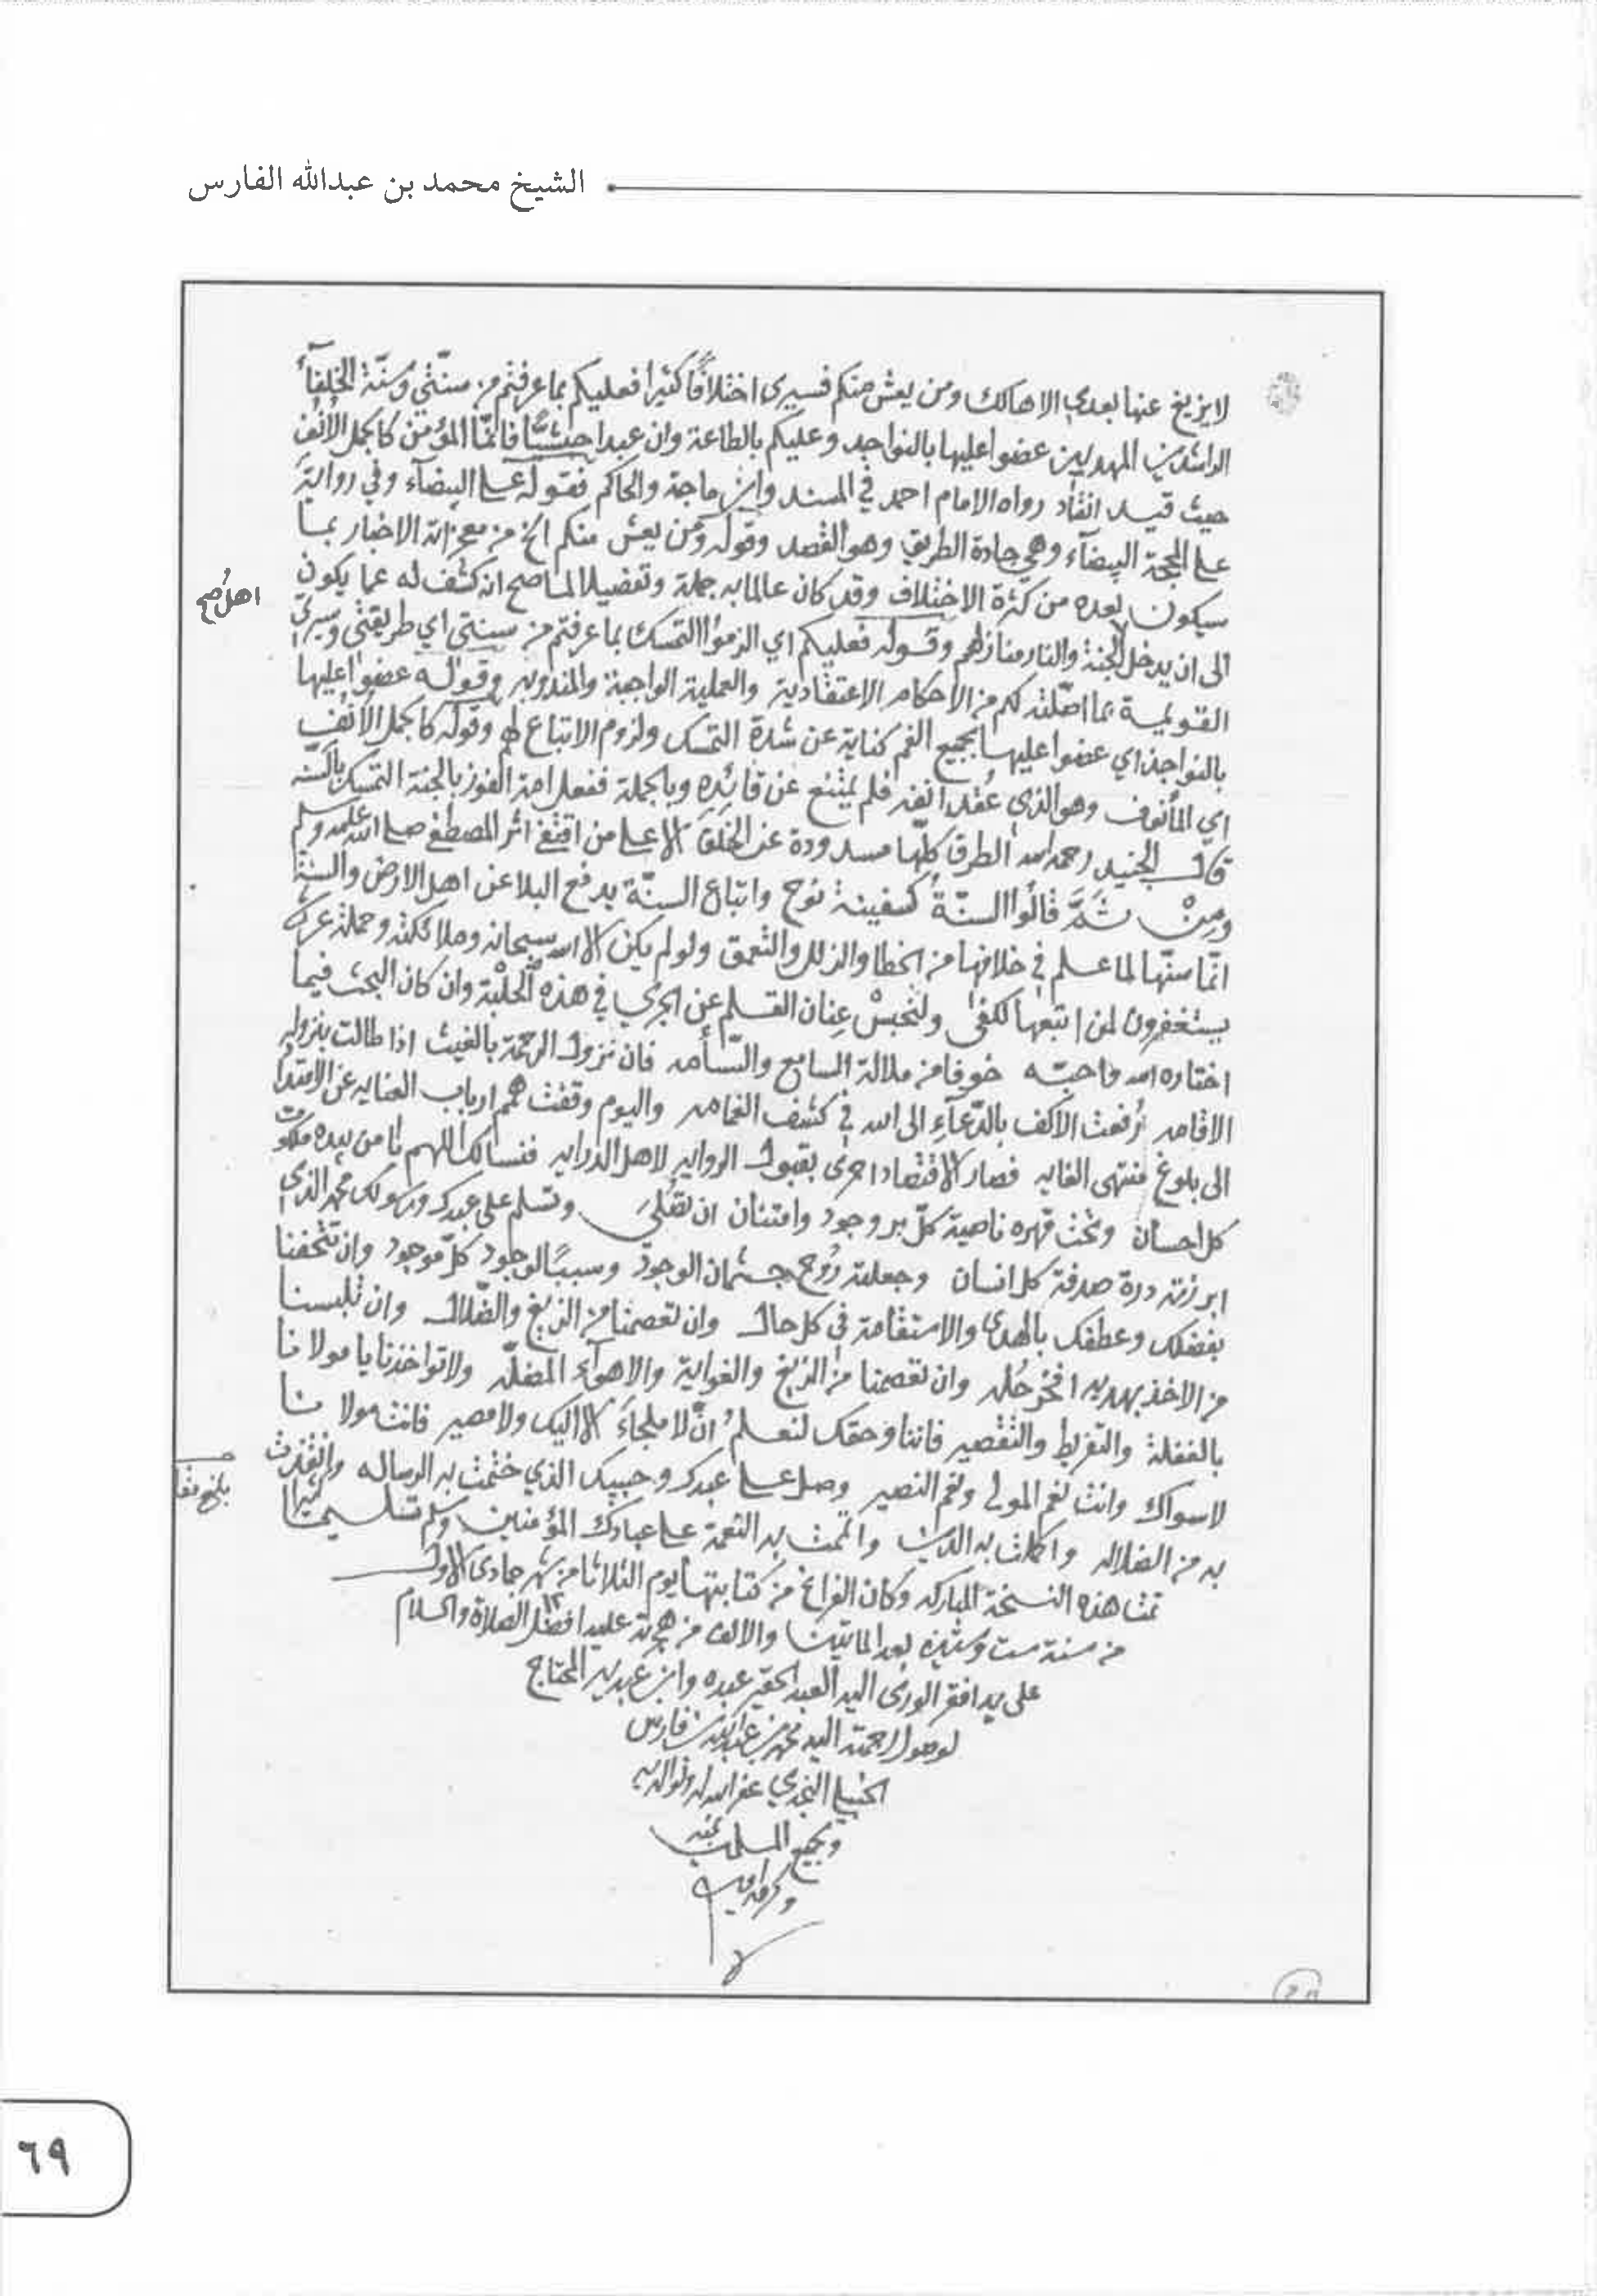 الشيخ محمد بن عبدالله الفارس
لا يزيغ عنها بعدي الا هالك ومن يعش منكم فسيرى اختلافًا كثيرا فعليكم بما عرفتم من سنّتي وسنّة الخلفآء
الراشدين المهديين عضوا عليها بالنواجد وعليكم بالطاعة وان عبدا حبشيًّا فانمّا المؤمن كالجمل الأنف
حيث قيد انقاد رواه الامام احمد في المسند وابن ماجة والحاكم فقوله على البيضآء وفي رواية
على المحجة البيضآء وهي جادة الطريق وهو القصد وقوله ومن يعش منكم الخ من معجزاته الاخبار بما
سيكون بعده من كثرة الاختلاف وقد كان عالما به جملة وتفضيلا لما صح انه كشف له عما يكون
الى ان يدخل الجنة والنار منازلهم وقوله فعليكم اي الزموا التمسك بما عرفتم من سنتي اي طريقتي وسيرتي
اهلُ صح
القويمة مما اصّلته لكم من الاحكام الاعتقادية والعملية الواجبة والمندوبه وقوله عضوا عليها
بالنواجذ اي عضوا عليها بجميع الفم كناية عن شدة التمسك ولزوم الاتباع لهم وقوله كالجمل الأنف
اي المأنوف وهو الذي عُقِد انفه فلم يمتنع عن قائده وبالجملة ففعل امة الفوز بالجنة التمسك بالسنّه
قال الجنيد رحمه الله الطرق كلّها مسدودة عن الخلق الا على من اقتفى اثر المصطفى صلى الله عليه وسلم
ومِنْ ثَمَّ قالُوا السنّة كسفينة نوح واتباع السنّة يدفع البلا عن اهل الارض والسنة
انمّا سنّها لما علم في خلافها من الخطا والزلل والتعمق ولو لم يكن الا الله سبحانه وملائكته وحملة عرشه
يستغفرون لمن اتبعها لكفى ولنحبسْ عِنان القلم عن الجري في هذه الحلْبة وان كان البحث فيما
اختاره الله واحبّه خوفا من ملالة السامع والسّأمه فان نزول الرحمة بالغيث اذا طالت بنزوله
الاقامه رُفعت الاكف بالدّعآءِ الى الله في كشف الغمامه واليوم وقفت همم ارباب العنايه عن الابتدآ
الى بلوغ منتهى الغايه فصار الاقتصاد احرى بقبول الروايه لاهل الدرايه فنسالك اللهم يا من بيده ملكوت
كل احسان وتحت قهره ناصية كلّ بر وجود وامتنان ان تصَلي وتسلم على عبدك ورسولك محمد الذي
ابرزته درة صدفة كل انسان وجعلته رُوح جثمان الوجود وسببًا لوجود كلّ موجود وان تتحفنا
بفضلك وعطفك بالهدى والاستقامة في كل حال وان تعصمنا من الزيغ والضّلال وان تلبسنا
من الاخذ بهديه افخر حُله وان تعصمنا من الزيغ والغواية والاهوآء المضلّه ولا تواخذنا يا مولانا
بالغفلة والتفريط والتقصير فاننا وحقك لنعلمُ انّ لا ملجأَ الا اليك ولا مصير فانت مولانا
لا سواك وانت نعم المولى ونعم النصير وصل على عبدك وحبيبك الذي ختمت به الرساله وانقذت
به من الضلاله واكملت به الدين واتممت به النعمة على عبادك المؤمنين وسلم تسليما كثيرا
تمت هذه النسخة المباركه وكان الفراغ من كتابتها يوم الثلاثا من شهر جمادى الاول ١٢
من سنة ست وستين بعد الماتين والالف من هجرته عليه افضل الصلاة والسلام
على يد افقر الورى اليه العبد الحقير عبده وابن عبديه المحتاج
لوصول رحمته اليه محمد بن عبدالله بن فارس
الحنبلي النجدي غفر الله له ولوالديه
وجميع المسلمين بمنه
وكرمه امين
٦٩